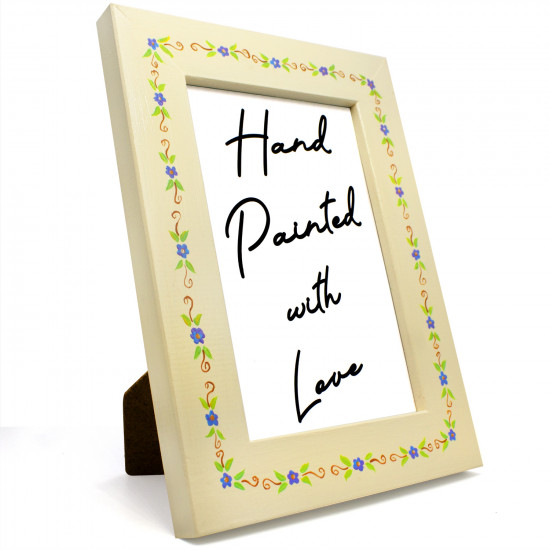 Hand
Painted
with
Love